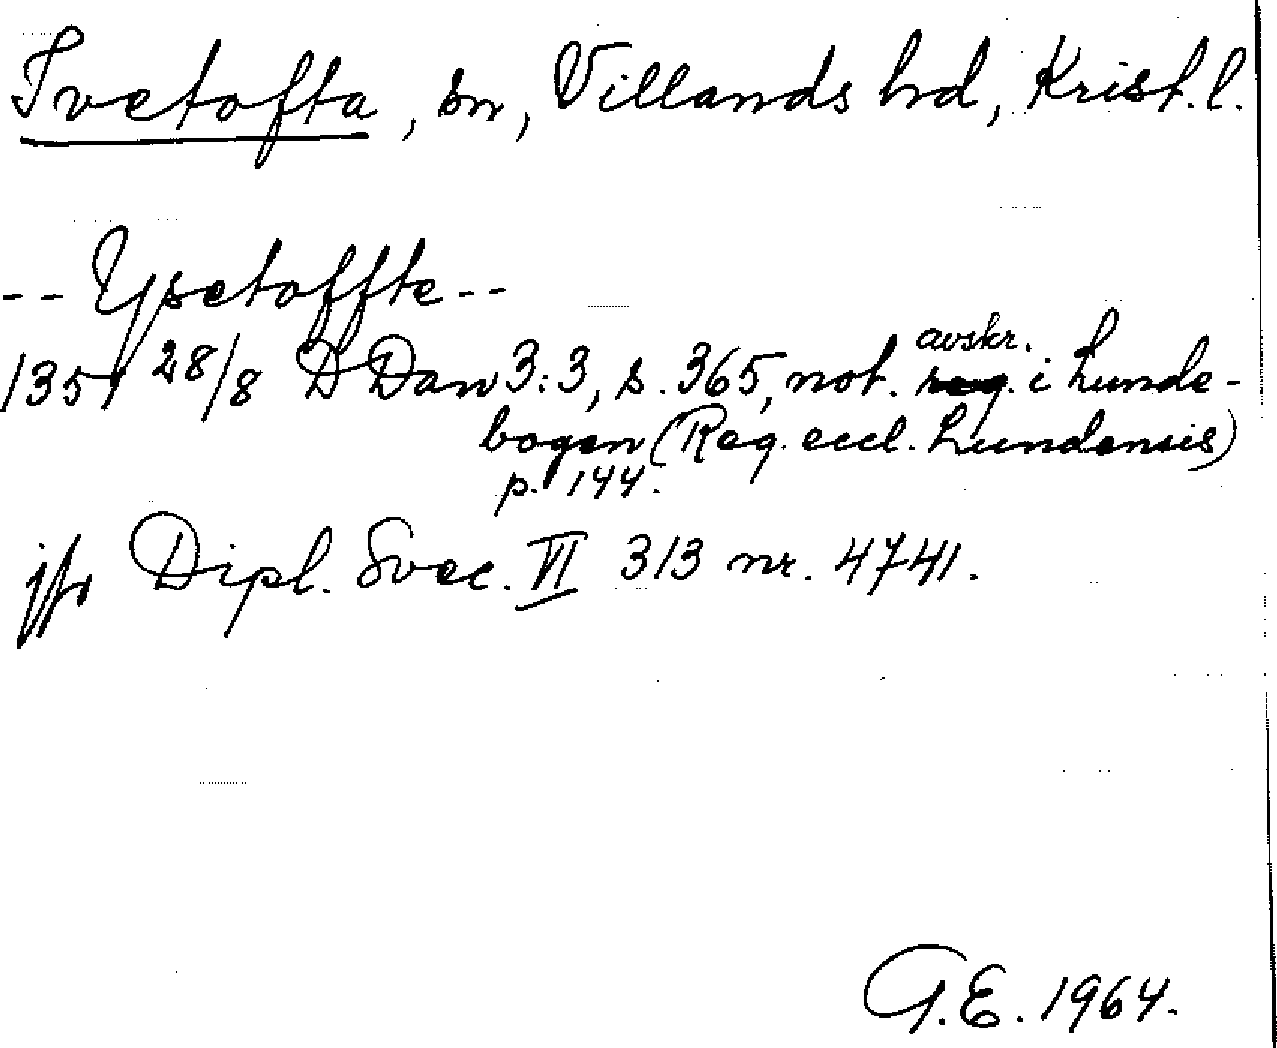 Ivetofta, sn, Villands hd, Krist. l.
-- Ysetoffte --
1351 28/8 D Dan 3:3, s. 365, not. avskr. i Lunde-
bogen (Reg. eccl. Lundensis)
p. 144.
jfr Dipl. Svec. VI 313 nr. 4741.
G.E. 1964.